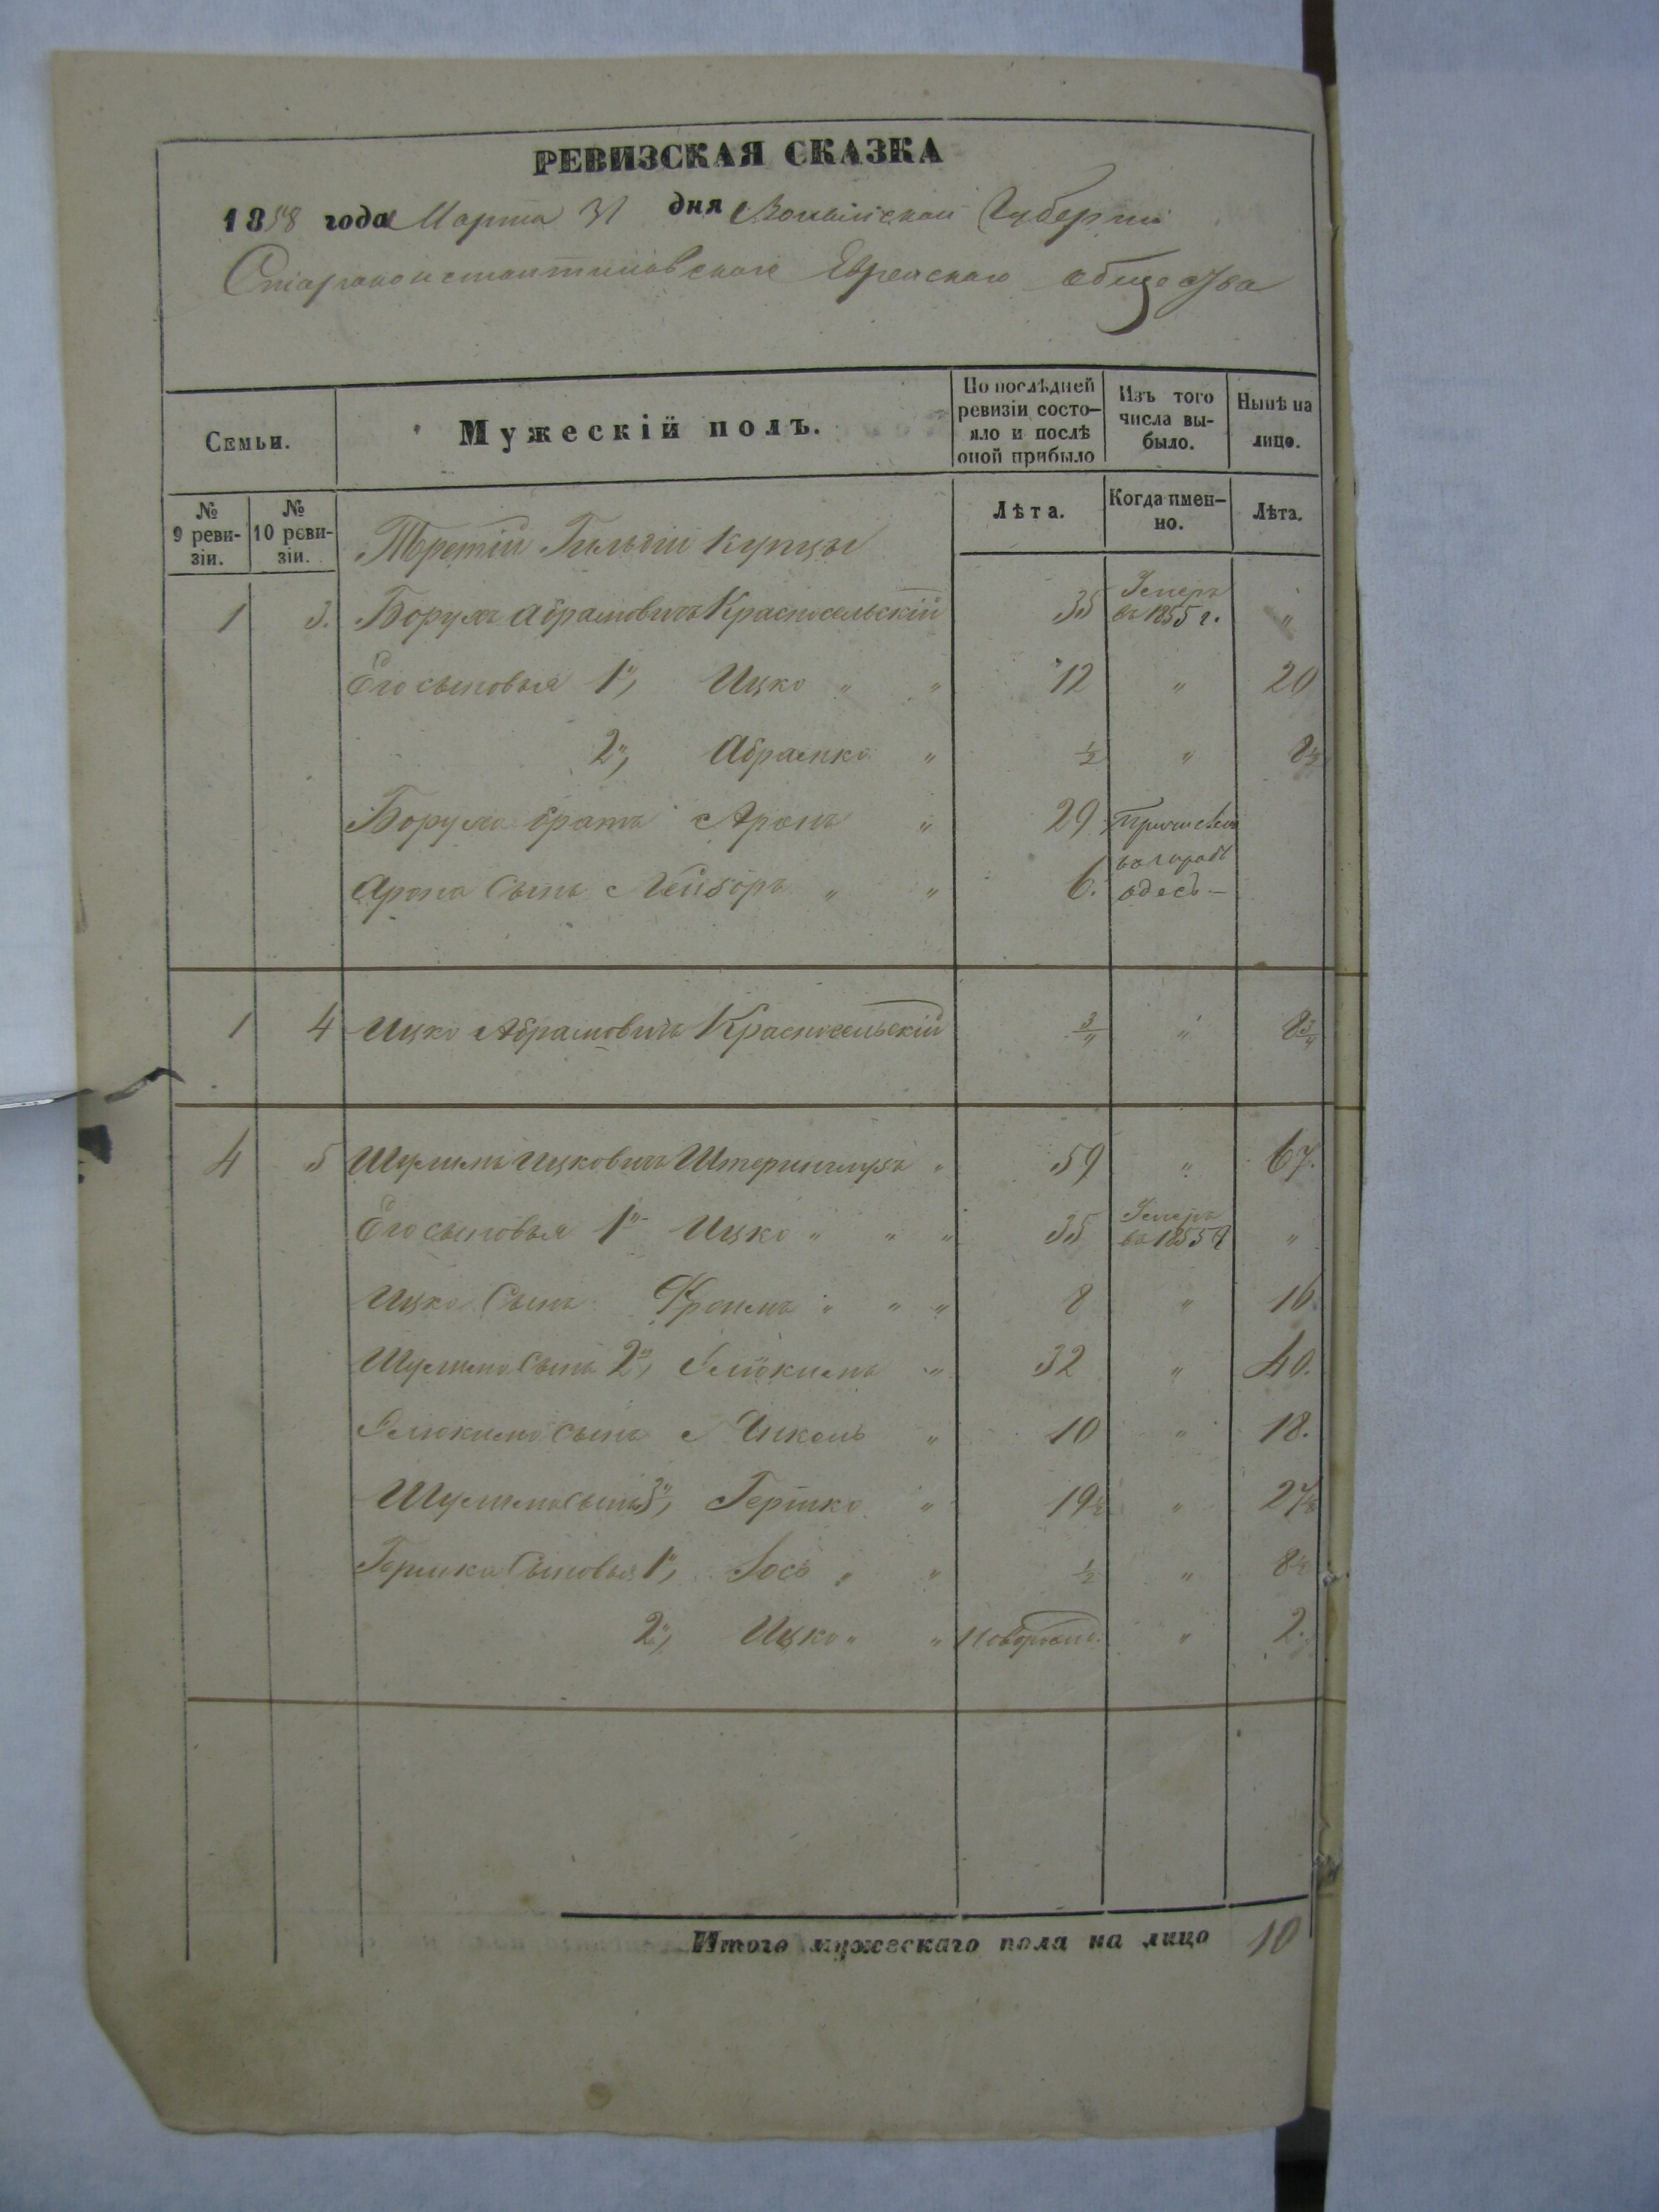 РЕВИЗСКАЯ СКАЗКА
1858 года Марта 31 дня Волынской Губерніи
Староконстантиновскаго Еврейскаго общества
Семьи.
Мужескій полъ.
По послѣдней ревизіи состо-яло и послѣ оной прибыло
Изъ того числа вы-было.
Нынѣ на лицо.
№ 9 реви-зіи.
№ 10 реви-зіи.
Лѣта.
Когда имен-но.
Лѣта.
Третій Гильдіи купцы
1 3. Борухъ Абрамовичъ Красносельскій 35 Умеръ въ 1855 г. "
Его сыновья 1", Ицко " " 12 " 20
2", Абрамко " ½ " 8½
Боруха братъ Аронъ " 29 Причислен
Арона Сынъ Лейзоръ " " 6. въ городѣ Одесъ—
1 4 Ицко Абрамовичъ Красносельскій ¾ " 8¾
4 5 Шулимъ Ицковичъ " 59 " 67.
Его сыновья 1"- Ицко " " " 35 Умеръ въ 1855 "
Ицко Сынъ Фроимъ " " " 8 " 16.
Шулима Сынъ 2", Зелюкимъ " 32 " 40.
Зелюкима сынъ " 10 " 18.
Шулима сынъ 3", Гершко " 19½ " 27½
Гершка Сыновья 1", Іось " " ½ " 8½
2", Ицко " " Новорожд: " 2.
Итого мужескаго пола на лицо 10